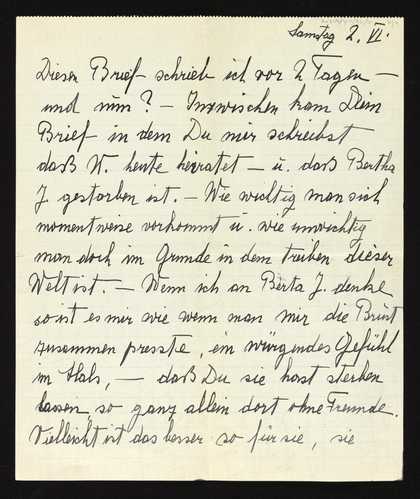 Samstag 2. VI.
Diesen Brief schrieb ich vor 2 Tagen —
und nun? — Inzwischen kam Dein
Brief in dem Du mir schreibst
daß W. heute heiratet — u. daß Bertha
J. gestorben ist. — Wie wichtig man sich
momentweise vorkommt u. wie unwichtig
man doch im Grunde in dem treiben dieser
Welt ist. — Wenn ich an Berta J. denke
so ist es mir wie wenn man mir die Brust
zusammen presste, ein würgendes Gefühl
im Hals, — daß Du sie hast sterben
lassen so ganz allein dort ohne Freunde.
Vielleicht ist das besser so für sie, sie